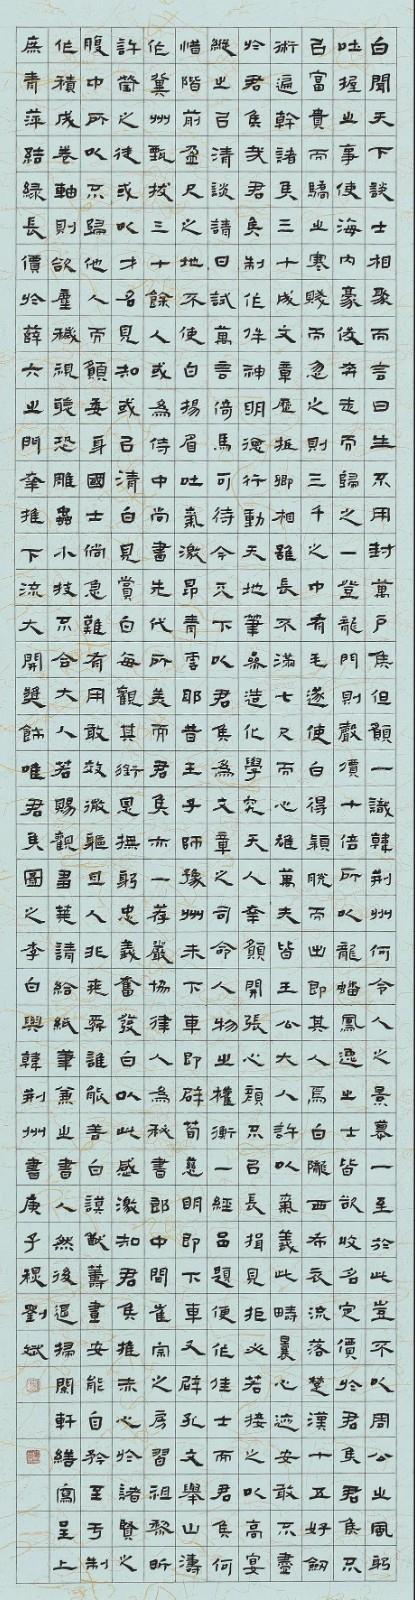 白聞天下談士相聚而言曰生不用封萬戶侯但願一識韓荊州何令人之景慕一至於此豈不以周公之風躬
吐握之事使海內豪俊奔走而歸之一登龍門則聲價十倍所以龍蟠鳳逸之士皆欲收名定價於君侯君侯不
以富貴而驕之寒賤而忽之則三千之中有毛遂使白得穎脫而出即其人焉白隴西布衣流落楚漢十五好劍
術遍幹諸侯三十成文章歷抵卿相雖長不滿七尺而心雄萬夫皆王公大人許以氣義此疇曩心迹安敢不盡
於君侯哉君侯制作侔神明德行動天地筆參造化學究天人幸願開張心顏不以長揖見拒必若接之以高宴
縱之以清談請日試萬言倚馬可待今天下以君侯為文章之司命人物之權衡一經品題便作佳士而君侯何
惜階前盈尺之地不使白揚眉吐氣激昂青雲耶昔王子師豫州未下車即辟荀慈明即下車又辟孔文舉山濤
作冀州甄拔三十餘人或為侍中尚書先代所美而君侯亦一荐嚴協律入為秘書郎中間崔宗之房習祖黎昕
許瑩之徒或以才名見知或以清白見賞白每觀其銜恩撫躬忠義奮發白以此感激知君侯推赤心於諸賢之
腹中所以不歸他人而願委身國士倘急難有用敢效微軀且人非堯舜誰能善白謨猷籌畫安能自矜至于制
作積成卷軸則欲塵穢視聽恐雕蟲小技不合大人若賜觀芻蕘請給紙筆兼之書人然後退掃閑軒繕寫呈上
庶青萍結綠長價於薛卞之門幸推下流大開獎飾唯君侯圖之李白與韓荊州書庚子劉斌